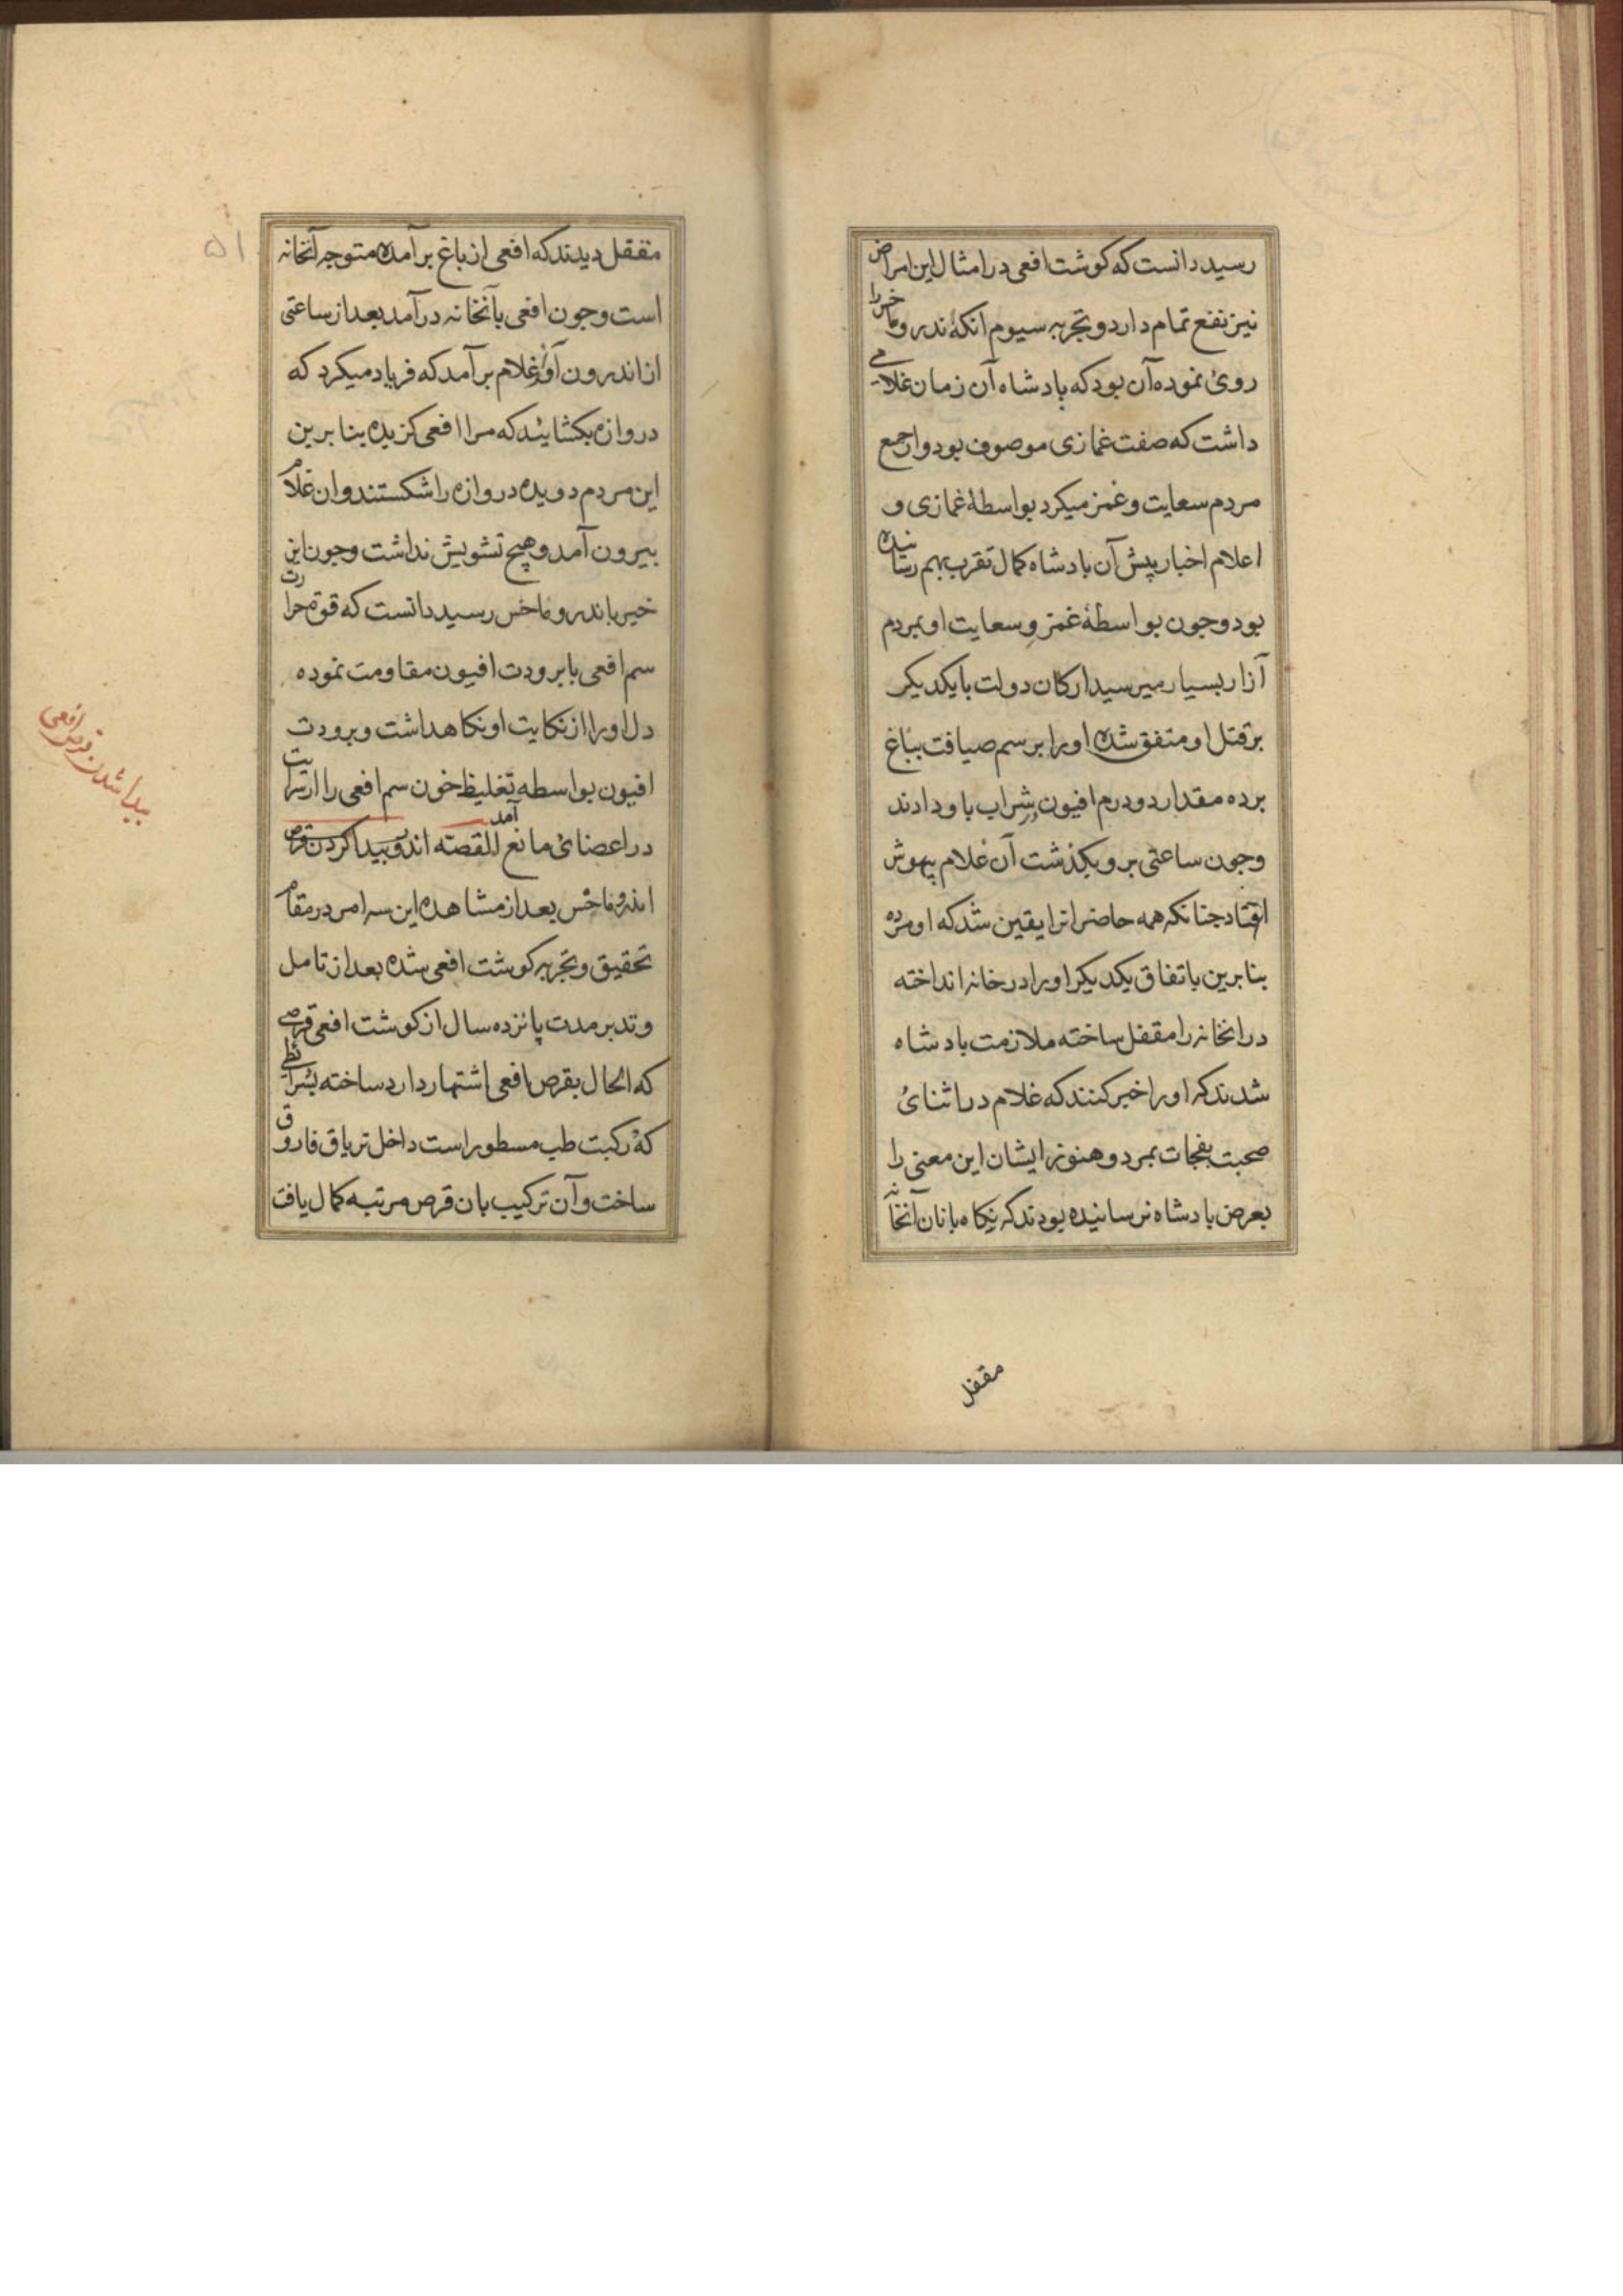 رسید دانست که کوشت افعی در امثال این امراض
نیز نفع تمام دارد و تجربه سیوم انکه اندروماخس را
روئ نموده آن بود که بادشاه آن زمان غلامے
داشت که صفت غمازی موصوف بود و از جمع
مردم سعایت و غمز میکرد بواسطهٔ غمازی و
اعلام اخبار پیش آن بادشاه کمال تقرب بهم رسانیده
بود و جون بواسطهٔ غمز و سعایت او بمردم
آزار بسیار میرسید ارکان دولت با یکدیکر
بر قتل او متفق شده او را برسم ضیافت بباغ
برده مقدار دو درم افیون در شراب باو دادند
و جون ساعتی برو بکذشت آن غلام بیهوش
افتاد جنانکه همه حاضرانرا یقین شد که او مرده
بنابرین باتفاق یکدیکر او را در خانه انداخته
در انخانه را مقفل ساخته ملازمت بادشاه
شدند که او را خبر کنند که غلام در اثنائ
صحبت بفجات بمرد و هنوز ایشان این معنی را
بعرض بادشاه نرسانیده بودند که نکاه بانان آنخانه
مقفل
مقفل دیدند که افعی از باغ برآمده متوجه آنخانه
است و جون افعی بآنخانه درآمد بعد از ساعتی
از اندرون آواز غلام برآمد که فریاد میکرد که
دروازه بکشایئد که مرا افعی کزیده بنابرین
این مردم دویده دروازه را شکستند و ان غلام
بیرون آمد و هیچ تشویش نداشت و جون این
خبر باندروماخس رسید دانست که قوة حرارت
سم افعی با برودت افیون مقاومت نموده
دل او را از نکایت او نکاهداشت و برودت
افیون بواسطه تغلیظ خون سم افعی را از سرایت
در اعضائ مانع آمد القصته اندو بیدا کردن قرص
اندروماخس بعد از مشاهده این سه امر در مقام
تحقیق و تجربه کوشت افعی شده بعد از تامل
و تدبر مدت پانزده سال از کوشت افعی قرصے
که الحال بقرص افعی اشتهار دارد ساخته بشرائطے
که در کتب طب مسطور است داخل تریاق فاروق
ساخت و آن ترکیب بان قرص مرتبه کمال یافت
بیدا شدن قرص افعی
۵۱